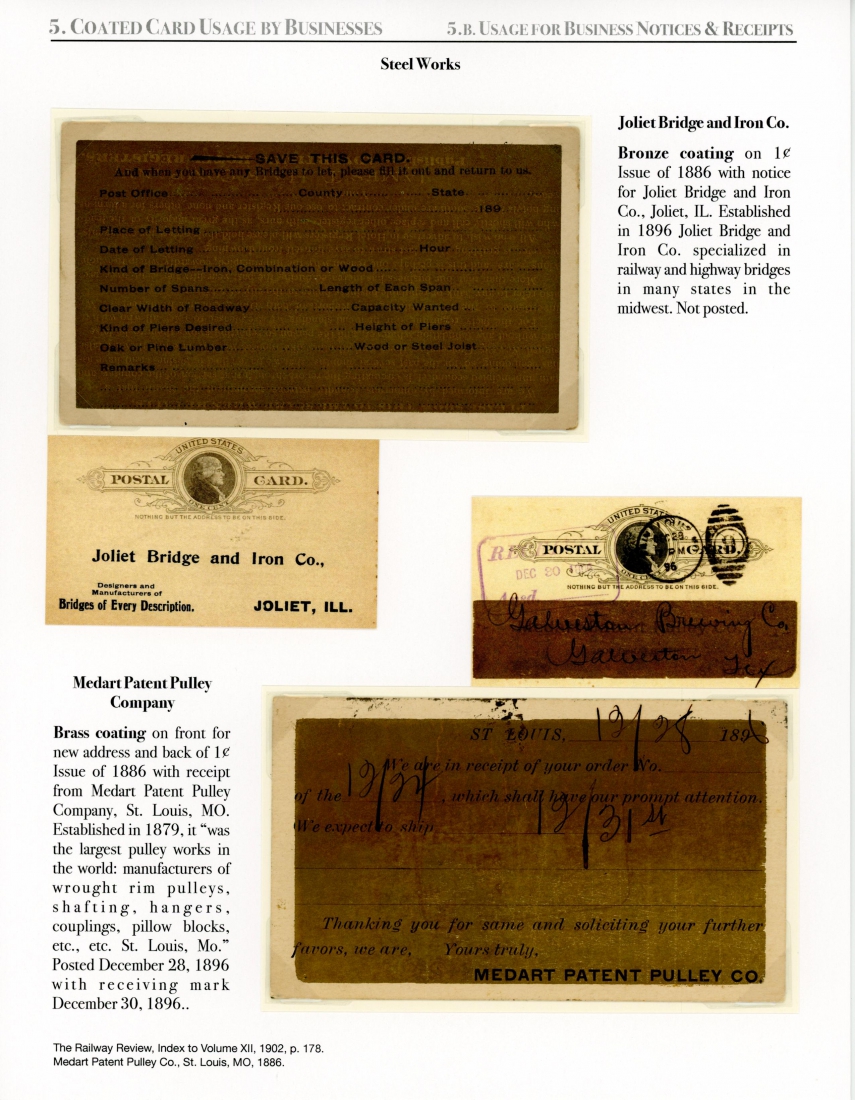 5. COATED CARD USAGE BY BUSINESSES 5.B. USAGE FOR BUSINESS NOTICES & RECEIPTS
Steel Works
SAVE THIS CARD.
And when you have any Bridges to let, please fill it out and return to us.
Post Office County State
189
Place of Letting
Date of Letting Hour
Kind of Bridge—Iron, Combination or Wood
Number of Spans Length of Each Span
Clear Width of Roadway Capacity Wanted
Kind of Piers Desired Height of Piers
Oak or Pine Lumber Wood or Steel Joist
Remarks
Joliet Bridge and Iron Co.
Bronze coating on 1¢
Issue of 1886 with notice
for Joliet Bridge and Iron
Co., Joliet, IL. Established
in 1896 Joliet Bridge and
Iron Co. specialized in
railway and highway bridges
in many states in the
midwest. Not posted.
UNITED STATES
POSTAL CARD.
ONE CENT
NOTHING BUT THE ADDRESS TO BE ON THIS SIDE.
Joliet Bridge and Iron Co.,
Designers and
Manufacturers of
Bridges of Every Description. JOLIET, ILL.
UNITED STATES
POSTAL CARD.
DEC 30
28
PM
96
9
NOTHING BUT THE ADDRESS TO BE ON THIS SIDE.
Galveston Brewing Co.
Galveston
Tex
Medart Patent Pulley
Company
Brass coating on front for
new address and back of 1¢
Issue of 1886 with receipt
from Medart Patent Pulley
Company, St. Louis, MO.
Established in 1879, it “was
the largest pulley works in
the world: manufacturers of
wrought rim pulleys,
shafting, hangers,
couplings, pillow blocks,
etc., etc. St. Louis, Mo.”
Posted December 28, 1896
with receiving mark
December 30, 1896..
ST LOUIS, 12/28 1896
We are in receipt of your order No.
of the 12/24, which shall have our prompt attention.
We expect to ship 12/31st
Thanking you for same and soliciting your further
favors, we are, Yours truly,
MEDART PATENT PULLEY CO.
The Railway Review, Index to Volume XII, 1902, p. 178.
Medart Patent Pulley Co., St. Louis, MO, 1886.